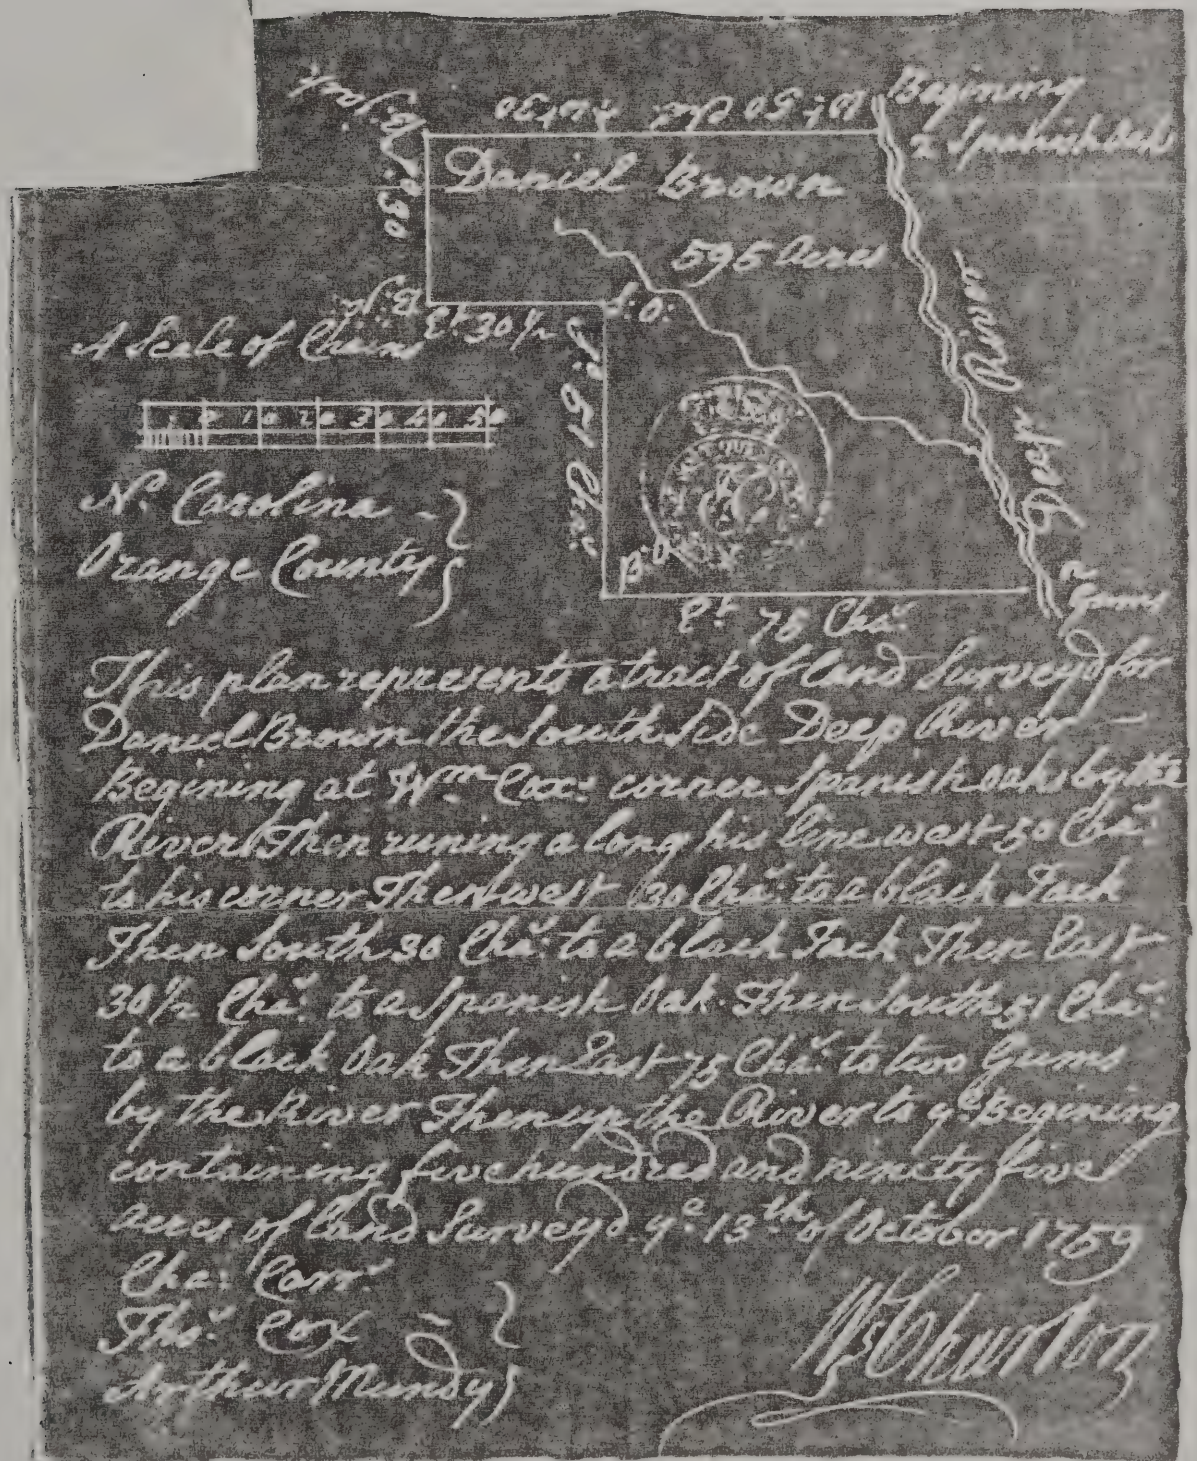 Begining
2 Spanish oaks
Wt. 50 Chs. & Wt 30
Daniel Brown
595 Acres
B. Jack
So. 30
B. J.
Et. 30 1/2
S. O.
So. 51 Chs.
Deep River
A Scale of Chains
10 20 30 40 50
No. Carolina
Orange County
B. O.
Et. 75 Chs.
2 Gums
This plan represents a tract of land Surveyd for
Daniel Brown the South Side Deep River
Begining at Wm. Cox: corner Spanish oaks by the
River Then runing along his line west 50 Chs.
to his corner Then west 30 Chs. to a black Jack
Then South 30 Chs. to a black Jack Then East
30 1/2 Chs. to a Spanish Oak. Then South 51 Chs.
to a black Oak Then East 75 Chs. to two Gums
by the River Then up the River to ye. Begining
containing five hundred and ninety five
acres of land Surveyd. ye. 13th of October 1759
Cha: Carr.
Thos. Cox
Arthur Mundy
W Churton